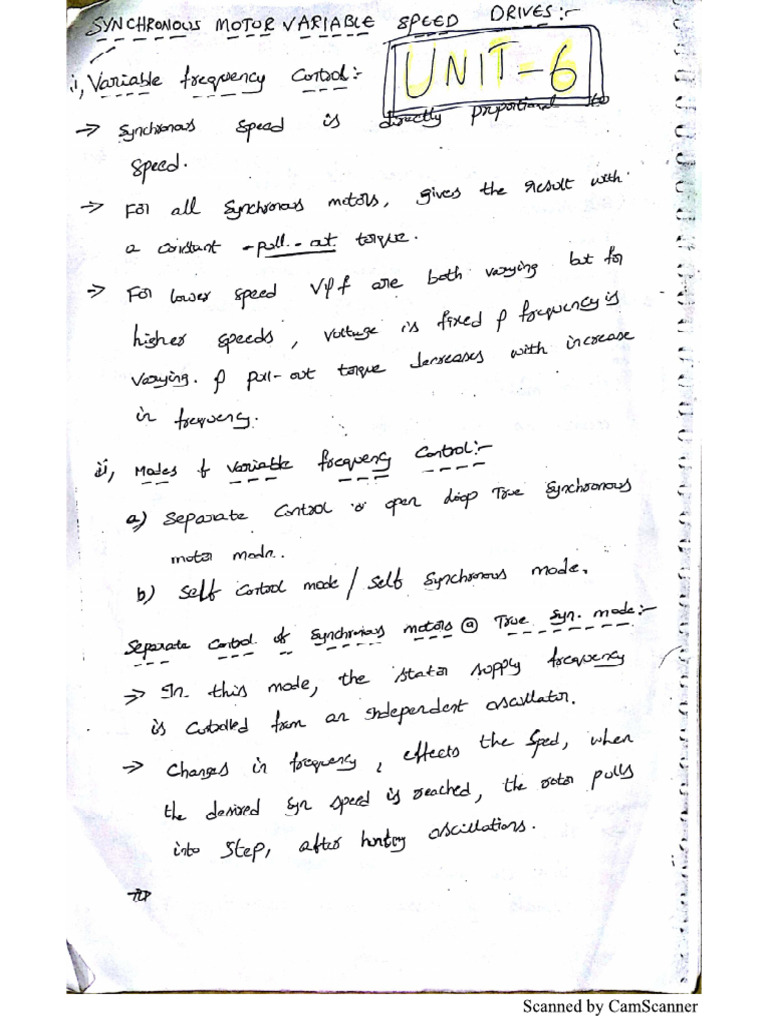 SYNCHRONOUS MOTOR VARIABLE SPEED DRIVES:-
UNIT-6
i, Variable frequency Control:-
→ Synchronous Speed is directly proportional to
Speed.
→ For all Synchronous motors, gives the result with
a constant -pull-out torque.
→ For lower speed V & f are both varying but for
higher speeds, voltage is fixed & frequency is
varying. & pull-out torque decreases with increase
in frequency.
ii, Modes of Variable frequency Control:-
a) Separate Control or open loop True Synchronous
motor mode..
b) Self Control mode / Self Synchronous mode.
Separate Control of Synchronous motors @ True Syn. mode:-
→ In this mode, the stator supply frequency
is Controlled from an Independent oscillator.
→ Changes in frequency, effects the Speed, when
the desired Syn speed is reached, the rotor pulls
into Step, after hunting oscillations.
→
Scanned by CamScanner